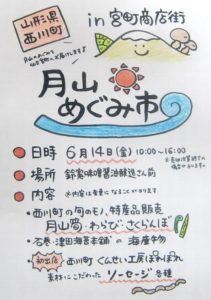 山形県
西川町
in 宮町商店街
月山
めぐみ市
日時 6月14日(金) 10:00~16:00
場所 鈴憲味噌醤油醸造さん前
内容 ※内容は変更になることがあります
・西川町の旬のモノ、特産品販売
月山筍・わらび・さくらんぼ
・石巻・津田海苔本舗の海産物
初出店
西川町 くんせい工房ぽれぽれ
素材にこだわった ソーセージ各種